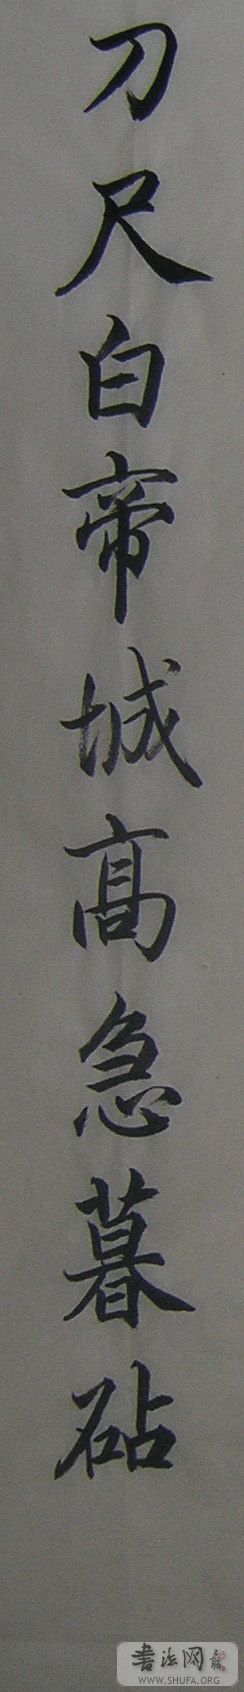 刀尺白帝城高急暮砧
書法网
WWW.SHUFA.ORG